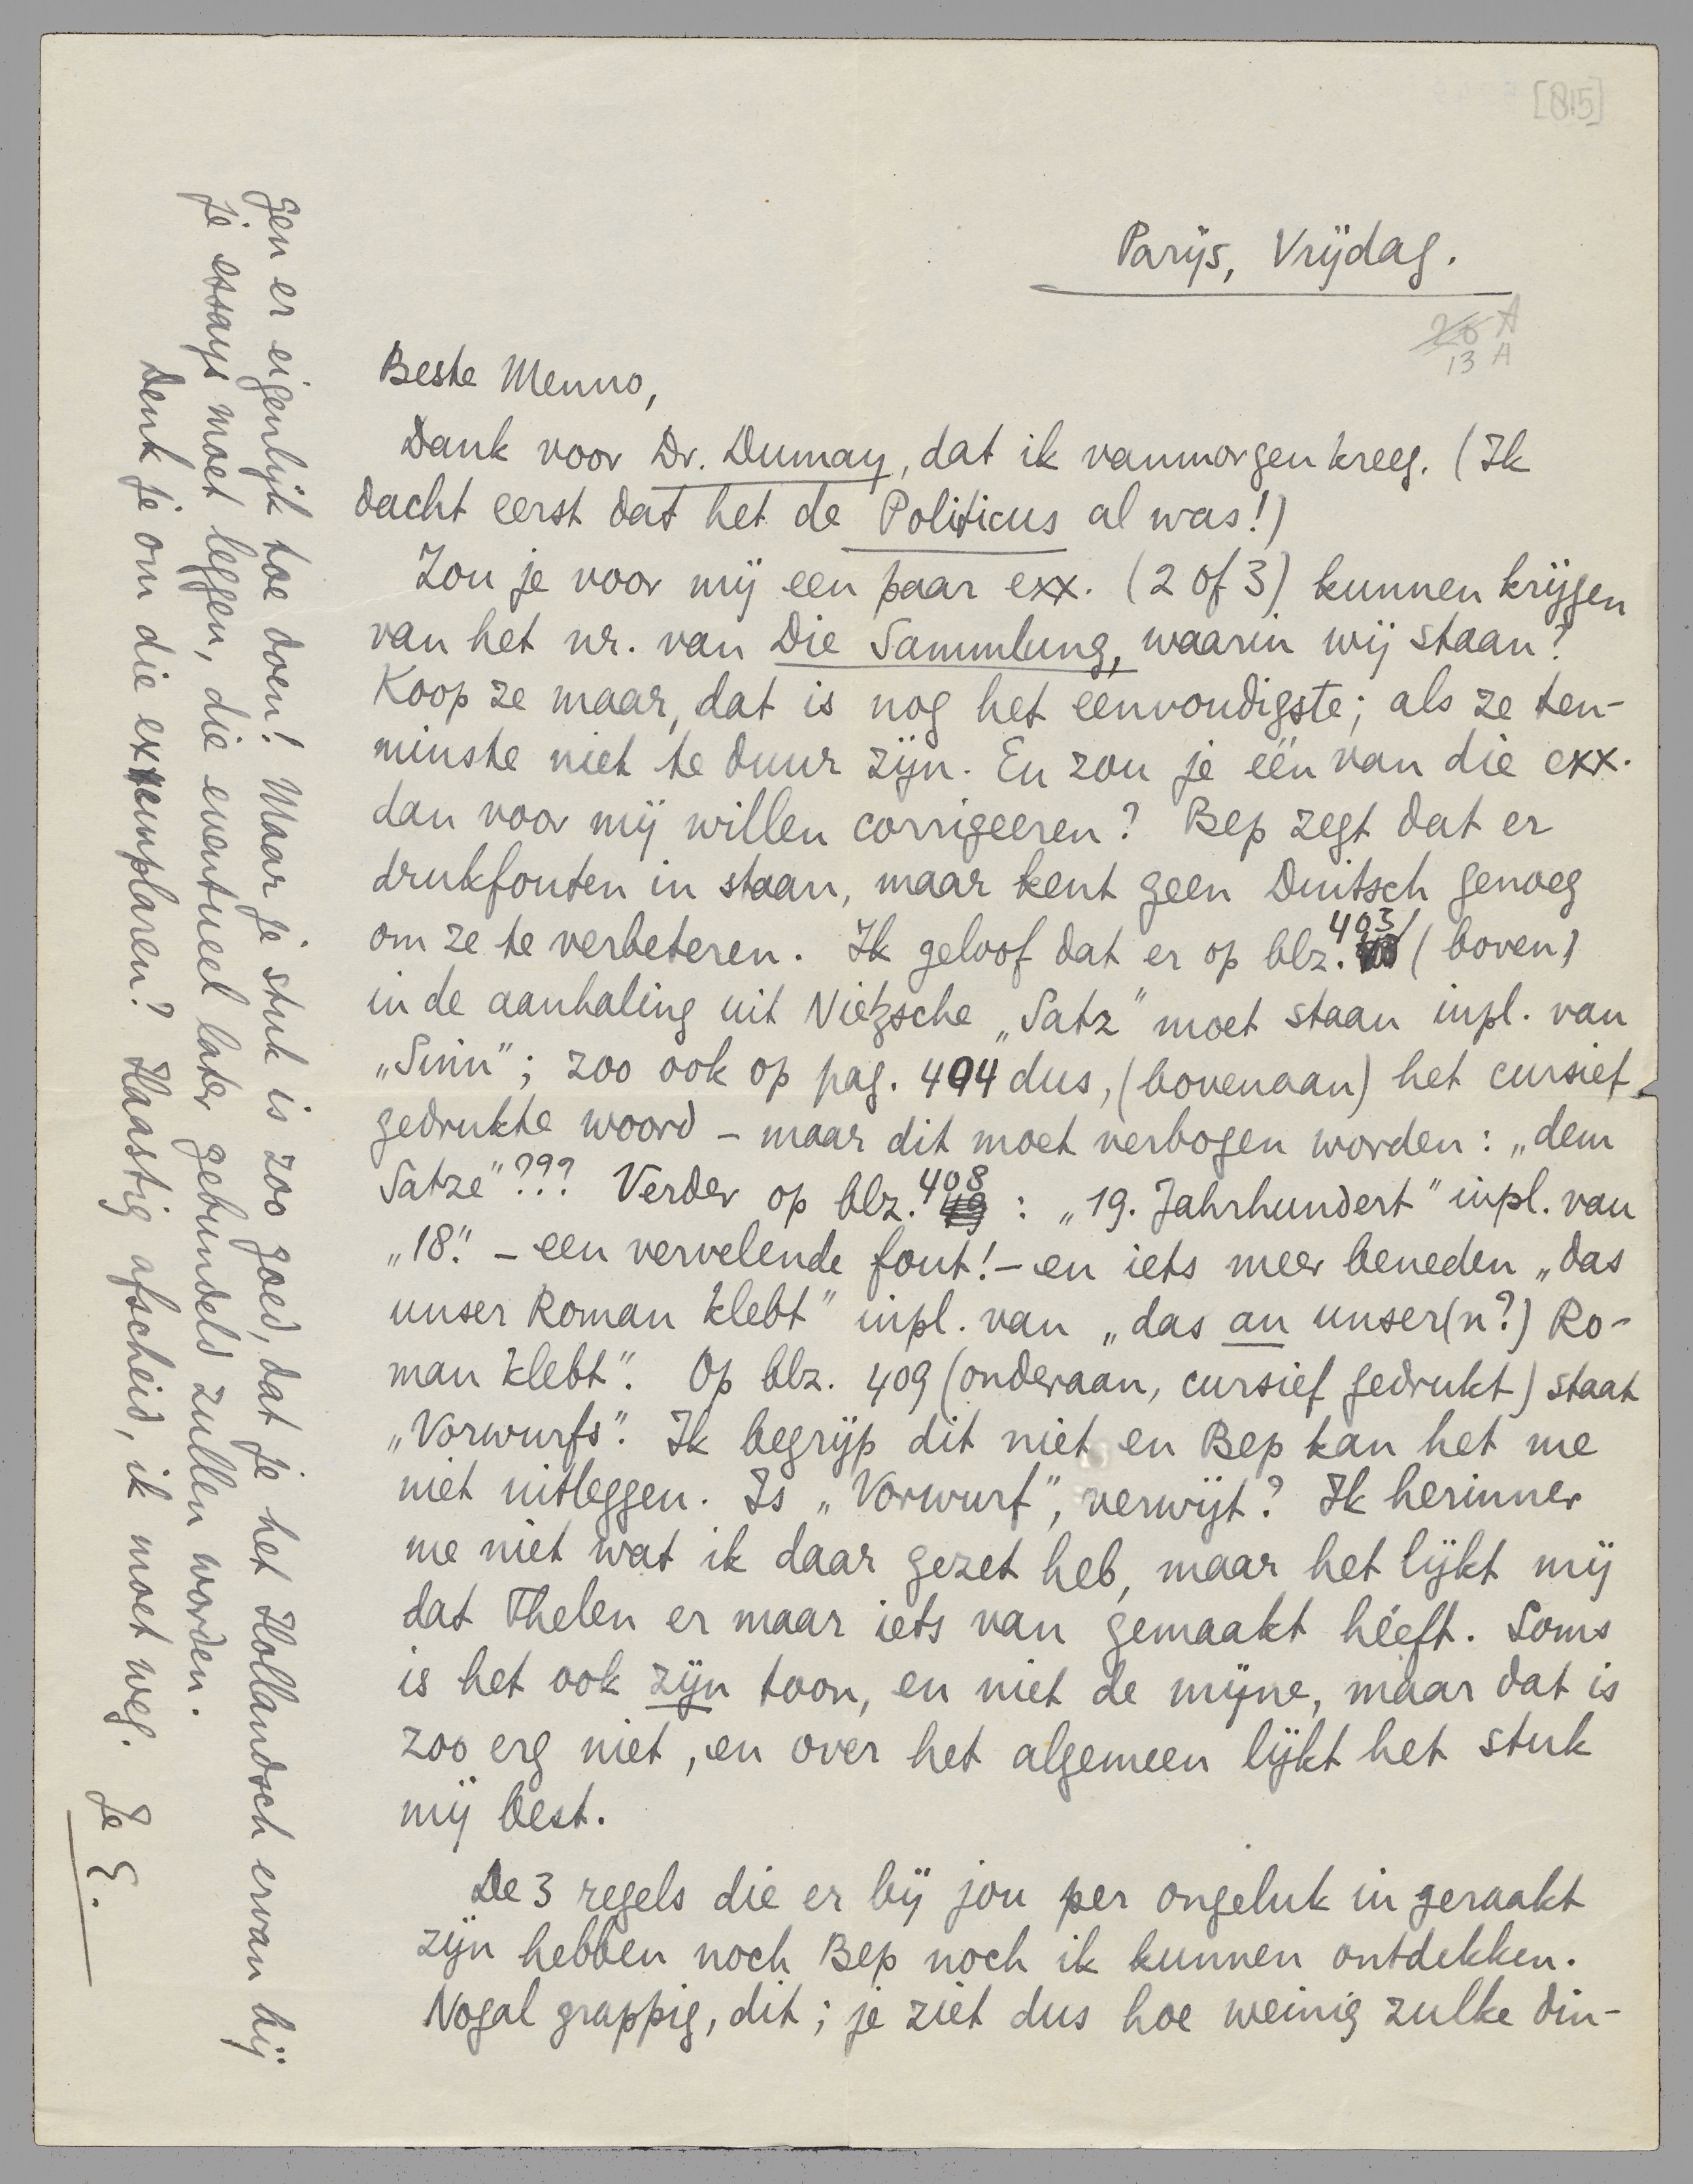 [815]
Parijs, Vrijdag.
26 A
13 A
Beste Menno,
Dank voor Dr. Dumay, dat ik vanmorgen kreeg. (Ik
dacht eerst dat het de Politicus al was!)
Zou je voor mij een paar exx. (2 of 3) kunnen krijgen
van het nr. van Die Sammlung, waarin wij staan?
Koop ze maar, dat is nog het eenvoudigste; als ze ten-
minste niet te duur zijn. En zou je één van die exx.
dan voor mij willen corrigeeren? Bep zegt dat er
drukfouten in staan, maar kent geen Duitsch genoeg
om ze te verbeteren. Ik geloof dat er op blz. 403 (boven)
in de aanhaling uit Nietzsche „Satz” moet staan inpl. van
„Sinn”; zoo ook op pag. 404 dus, (bovenaan) het cursief
gedrukte woord – maar dit moet verbogen worden: „dem
Satze”??? Verder op blz. 408: „19. Jahrhundert” inpl. van
„18.” – een vervelende fout! – en iets meer beneden „das
unser Roman klebt” inpl. van „das an unser(n?) Ro-
man klebt”. Op blz. 409 (onderaan, cursief gedrukt) staat
„Vorwurfs”. Ik begrijp dit niet en Bep kan het me
niet uitleggen. Is „Vorwurf”, verwijt? Ik herinner
me niet wat ik daar gezet heb, maar het lijkt mij
dat Thelen er maar iets van gemaakt hééft. Soms
is het ook zijn toon, en niet de mijne, maar dat is
zoo erg niet, en over het algemeen lijkt het stuk
mij best.
De 3 regels die er bij jou per ongeluk in geraakt
zijn hebben noch Bep noch ik kunnen ontdekken.
Nogal grappig, dit; je ziet dus hoe weinig zulke din-
gen er eigenlijk toe doen! Maar je stuk is zoo goed, dat je het Hollandsch ervan bij
je essays moet leggen, die eventueel later gebundeld zullen worden.
Denk je om die exemplaren? Haastig afscheid, ik moet weg.
Je E.